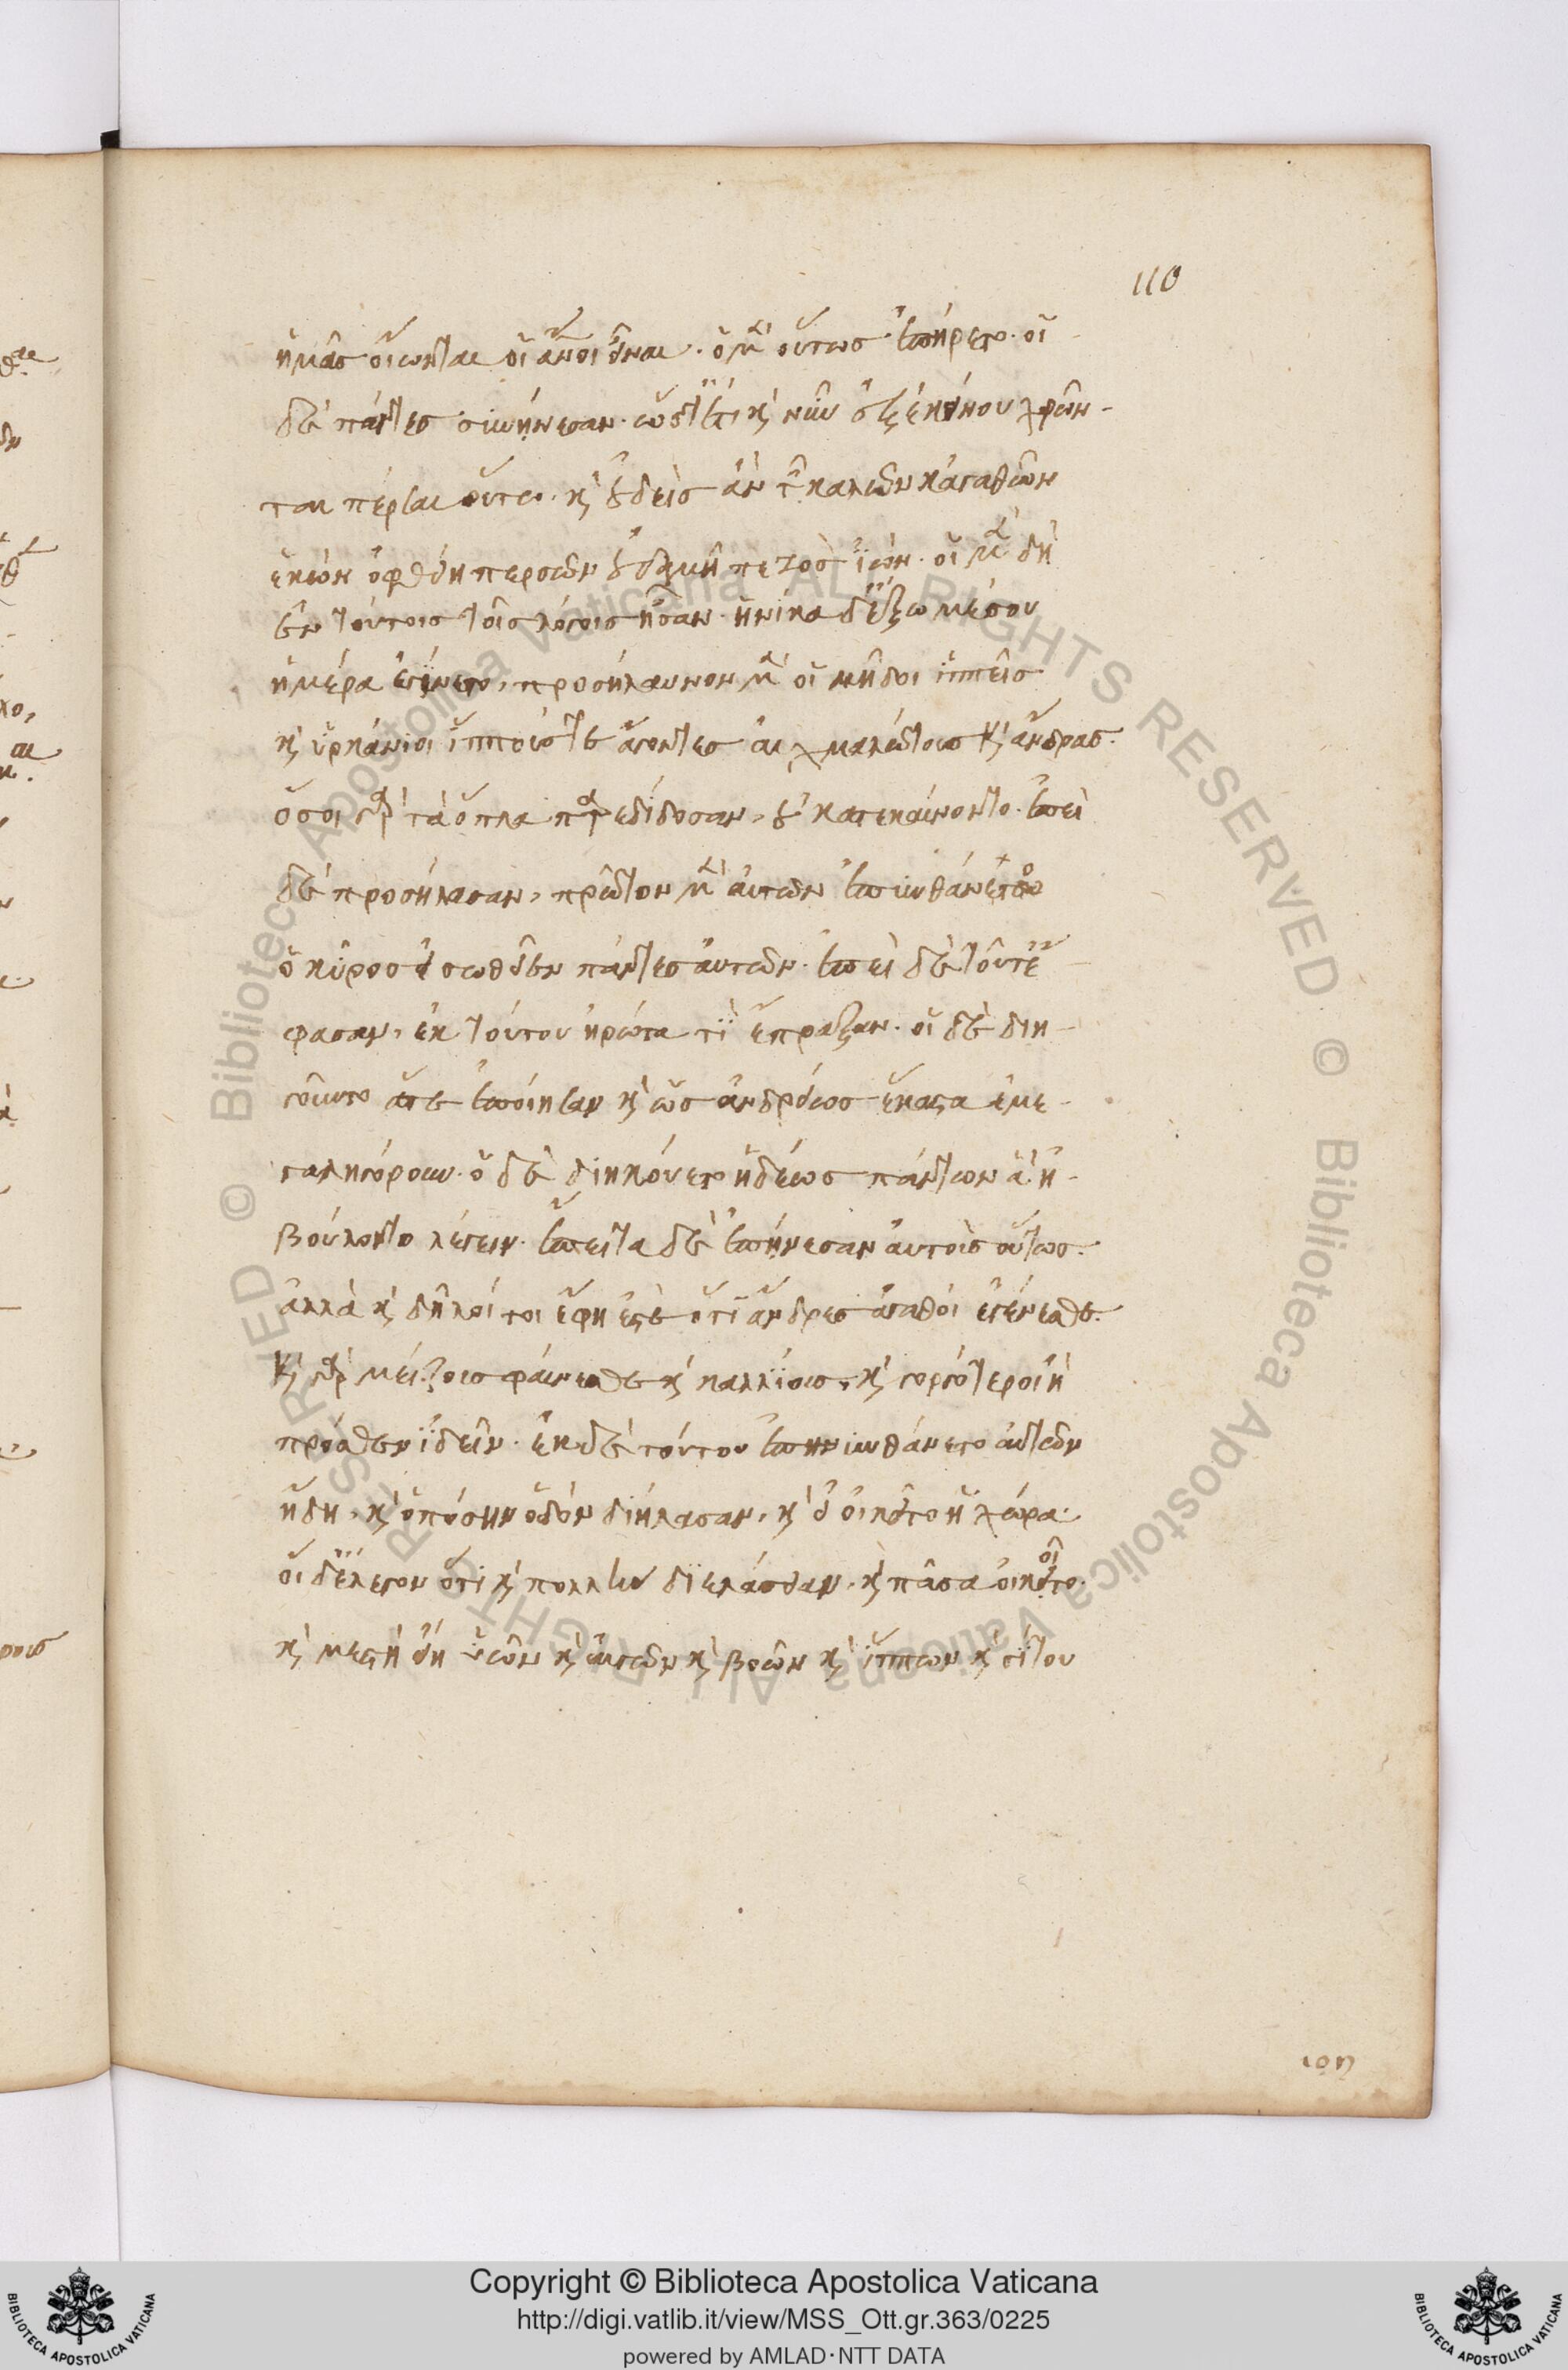 110
ἡμᾶς οἴωνται οἱ ἄνοι εἶναι. ὁ μὲν οὕτως ἐπήρετο. οἱ
δὲ πάντες συνῄνεσαν. ὥστ' ἔτι καὶ νῦν ἐξ ἐκείνου χρῶν-
ται πέρσαι οὕτω. καὶ οὐδεὶς ἂν τῶν καλῶν κἀγαθῶν
ἑκὼν ὀφθείη περσῶν οὐδαμῆ πεζὸς ἰών. οἱ μὲν δὴ
ἐν τούτοις τοῖς λόγοις ἦσαν. ἡνίκα δ' ἔξω μέσου
ἡμέρα ἐγίνετο, προσήλαυνον μὲν οἱ μῆδοι ἱππεῖς
καὶ ὑρκάνιοι ἵππους τε ἄγοντες αἰχμαλώτους καὶ ἄνδρας.
ὅσοι γὰρ τὰ ὅπλα παρεδίδοσαν, οὐ κατεκαίνοντο. ἐπεὶ
δὲ προσήλασαν, πρῶτον μὲν αὐτῶν ἐπυνθάνετο
ὁ κῦρος εἰ σωθεῖεν πάντες αὐτῶν. ἐπεὶ δὲ τοῦτ' ἔ
φασαν, ἐκ τούτου ἠρώτα τί ἔπραξαν. οἱ δὲ διη-
γοῦντο ἅτε ἐποίησαν καὶ ὡς ἀνδρείως ἕκαστα ἐμε-
γαληγόρουν. ὁ δὲ διηκόυετο ἡδέως πάντων ἃ ἠ-
βούλοντο λέγειν. ἔπειτα δὲ ἐπῄνεσαν αὐτοῖς οὕτως.
ἀλλὰ καὶ δῆλοί τοι ἔφη ἐστὲ ὅτι ἄνδρες ἀγαθοὶ ἐγένεσθε.
καὶ γὰρ μείζους φαίνεσθε καὶ καλλίους, καὶ γοργότεροι ἢ
πρόσθεν ἰδεῖν. ἐκ δὲ τούτου ἐπυνθάνετο αὐτῶν
ἤδη, καὶ ὁπόσην ὁδὸν διήλασαν, καὶ εἰ οἰκεῖτο ἡ χώρα.
οἱ δ' ἔλεγον ὅτι καὶ πολλὴν διελάσειαν, καὶ πᾶσα οἰκοῖτο.
καὶ μεστὴ εἴη οἰῶν καὶ αἰγῶν καὶ βοῶν καὶ ἵππων καὶ σίτου
Copyright © Biblioteca Apostolica Vaticana
http://digi.vatlib.it/view/MSS_Ott.gr.363/0225
powered by AMLAD·NTT DATA